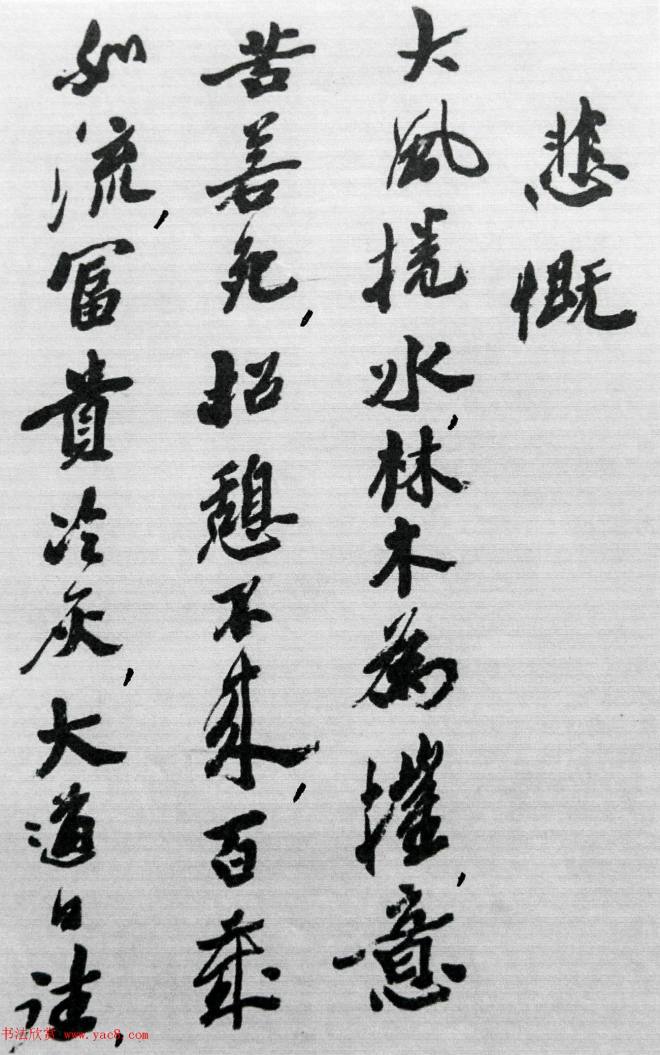 悲慨
大風捲水,林木為摧,意
苦若死,招憩不來,百歲
如流,富貴冷灰,大道日往,
书法欣赏 www.yac8.com